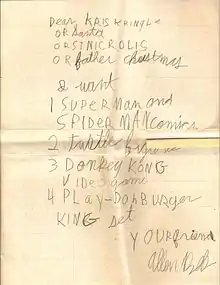 Dear KRIS KRINGLE
OR Santa
OR STNICROLIS
OR father christmas
I want
1 SUPERMAN and
SPIDERMAN comics
2 turtle
3 DONKEY KONG
Video game
4 PLAY-DOH BURGER
KING set
YOUR friend
Alan